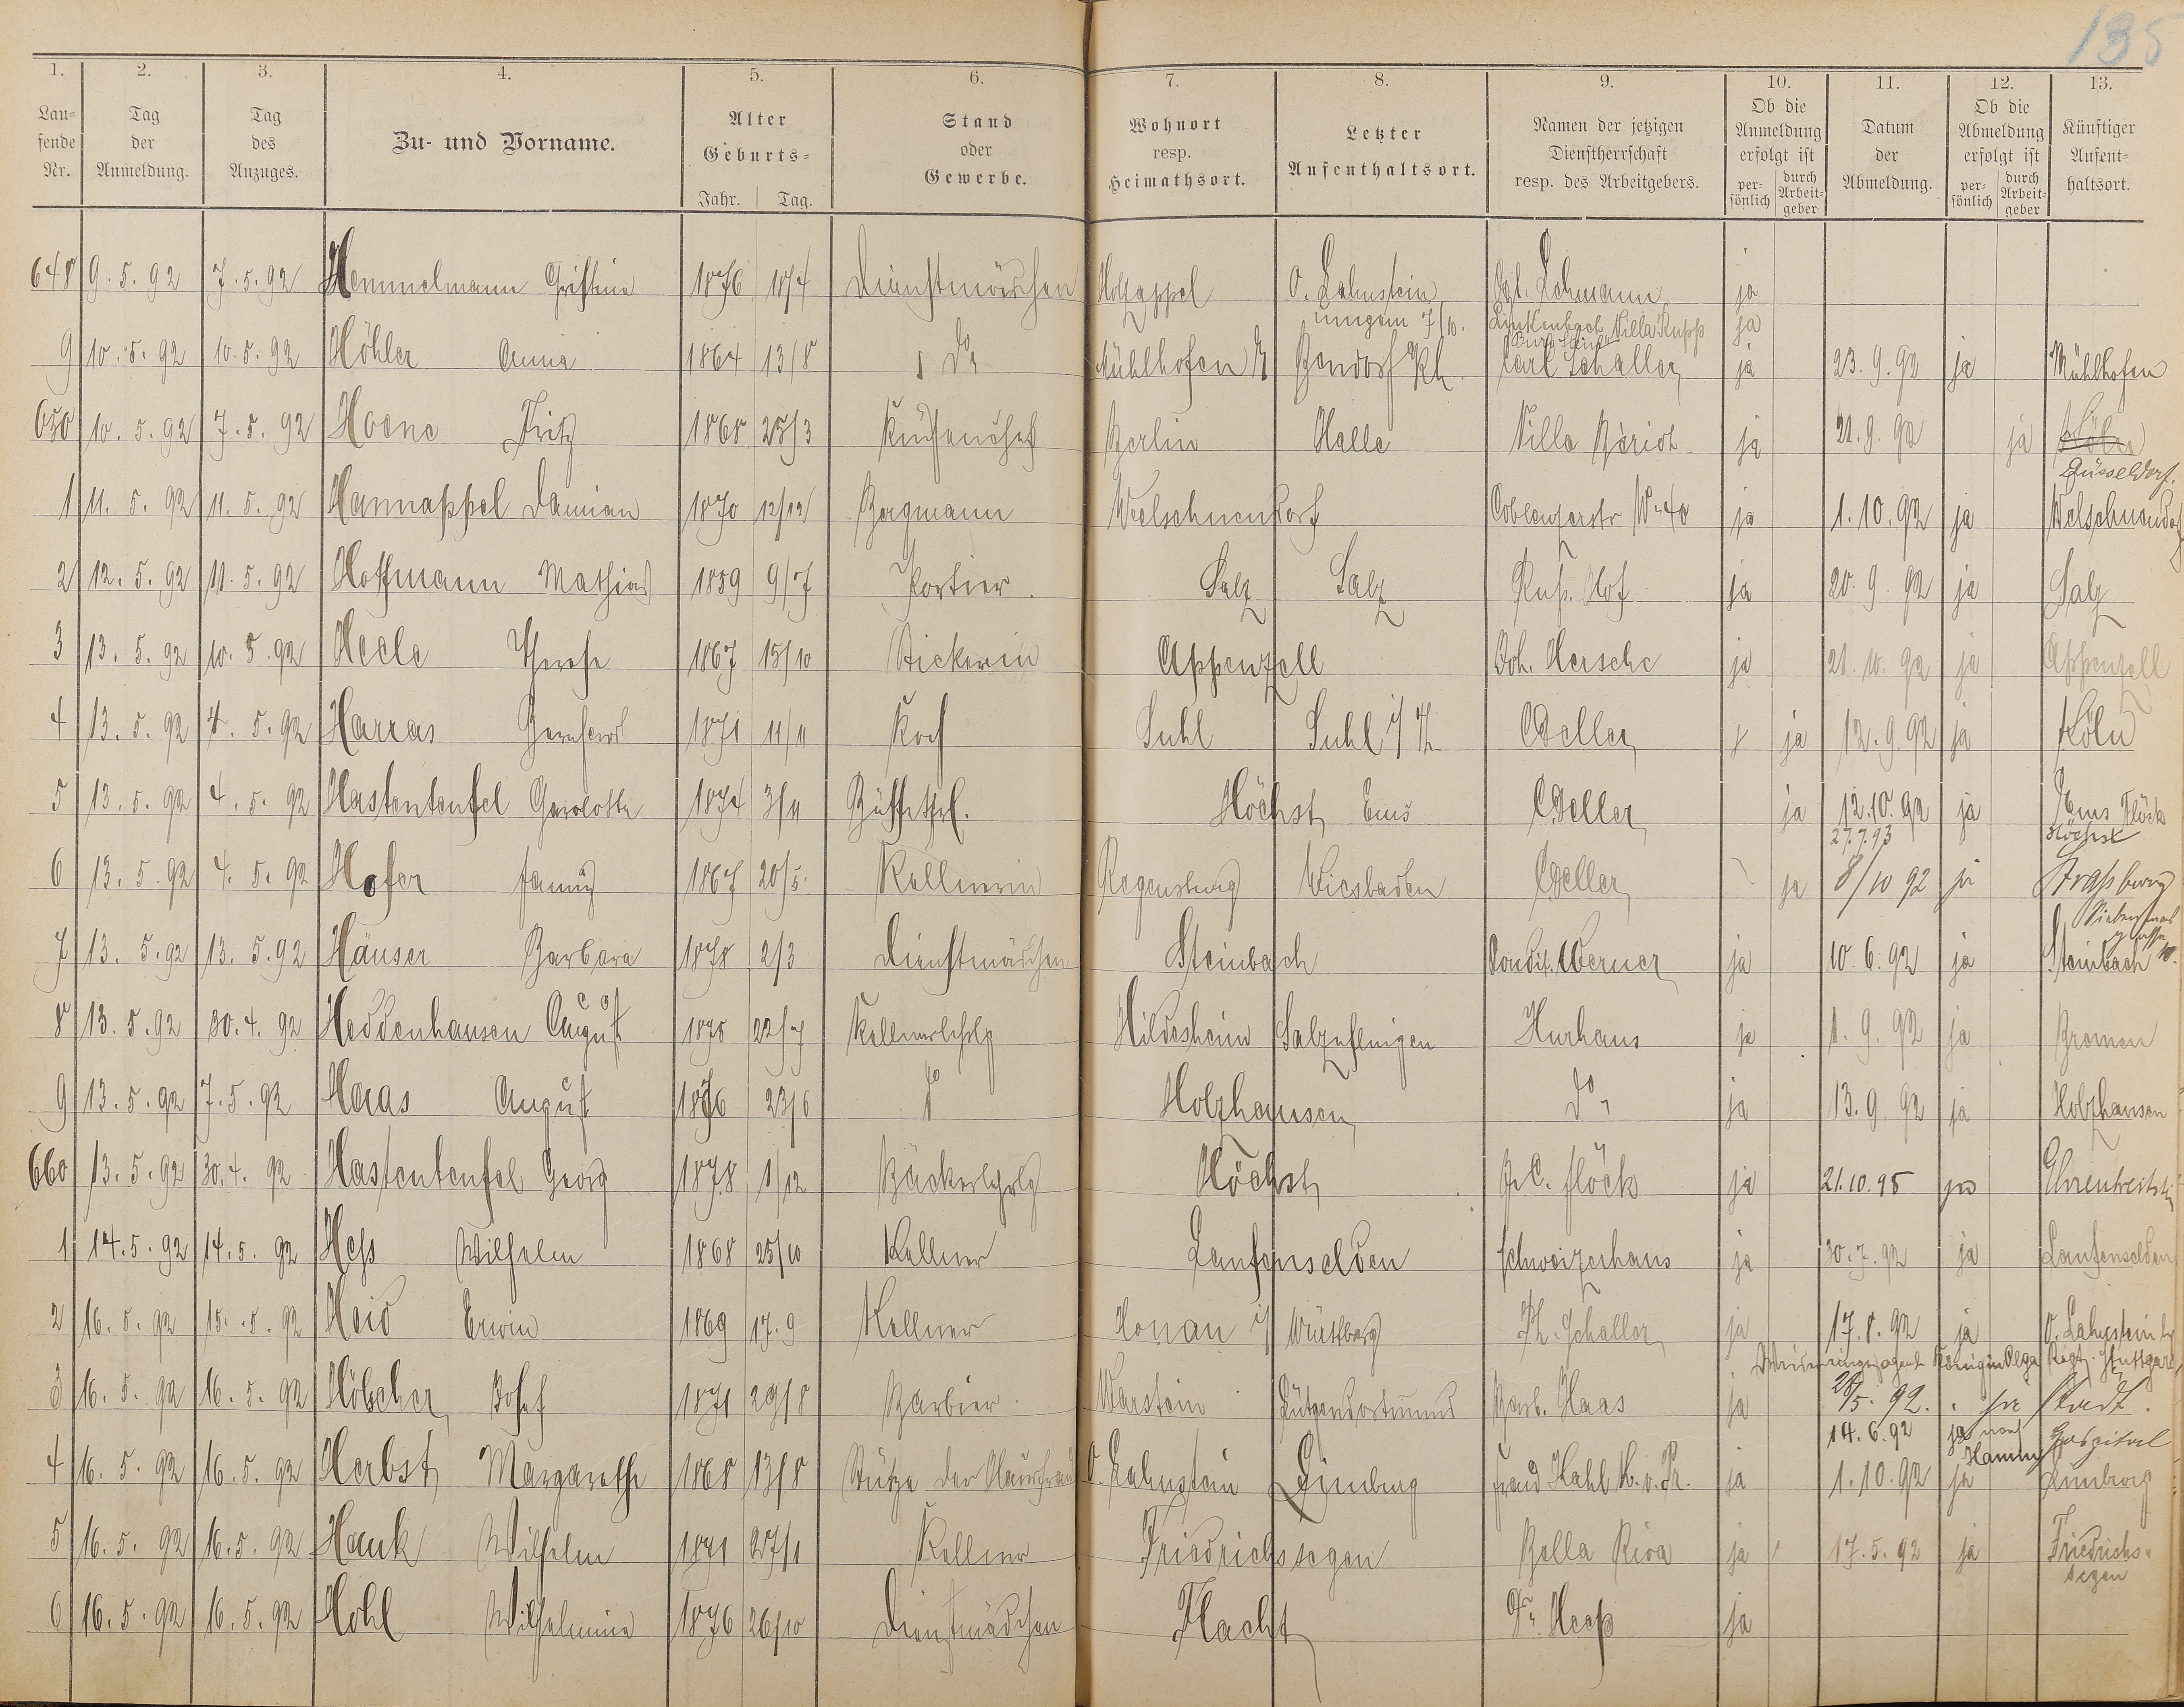 135
1. 2. 3. 4. 5. 6. 7. 8. 9. 10. 11. 12. 13.
Lau- fende Nr. | Tag der Anmeldung. | Tag des Anzuges. | Zu- und Vorname. | Alter Geburts- Jahr. Tag. | Stand oder Gewerbe. | Wohnort resp. Heimathsort. | Letzter Aufenthaltsort. | Namen der jetzigen Dienstherrschaft resp. des Arbeitgebers. | Ob die Anmeldung erfolgt ist per- sönlich durch Arbeit- geber | Datum der Abmeldung. | Ob die Abmeldung erfolgt ist per- sönlich durch Arbeit- geber | Künftiger Aufent- haltsort.
648 9.5.92 7.5.92 Hemmelmann 1876 18/4 Dienstmädchen Holzappel O. Lahnstein Lohmann ja
7/10. Linkenbach Villa Rupp ja
9 10.5.92 10.5.92 Höhler Anna 1864 13/8 do Mühlhofen Bendorf Rh. Carl Schaller ja 23.9.92 ja Mühlhofen
650 10.5.92 7.5.92 Hoene Fritz 1868 25/3 Küchenchef Berlin Halle Villa Bériot ja 21.9.92 ja Köln
Düsseldorf.
1 11.5.92 11.5.92 Hannappel Damian 1870 12/12 Bergmann Welschneudorf Coblenzerstr No 40 ja 1.10.92 ja Welschneudorf
2 12.5.92 11.5.92 Hoffmann Mathias 1859 9/7 Portier. Salz Salz Russ. Hof ja 20.9.92 ja Salz
3 13.5.92 10.5.92 Heele Therese 1867 15/10 Stickerin Appenzell Joh. Hersche ja 21.10.92 ja Appenzell
4 13.5.92 4.5.92 Harras Bernhard 1871 11/11 Koch Suhl Suhl i/Th Oeller ja 12.9.92 ja Köln
5 13.5.92 4.5.92 Hastenteufel 1874 3/11 Büffetfrl. Höchst Ems Oeller ja 12.10.92 ja Ems Flöck
27.7.93 Höchst
6 13.5.92 4.5.92 Hofer Fanny 1867 20/5. Kellnerin Regensburg Wiesbaden Oeller ja 8/10 92 ja Straßburg
7 13.5.92 13.5.92 Häuser Barbara 1878 2/3 Dienstmädchen Steinbach Condit. Werner ja 10.6.92 ja Steinbach
8 13.5.92 30.4.92 Heddenhausen August 1875 22/7 Kellnerlehrlg Hildesheim Salzuflen Kurhaus ja 1.9.92 ja Bremen
9 13.5.92 7.5.92 Haas August 1876 23/6 do Holzhausen do ja 13.9.92 ja Holzhausen
660 13.5.92 30.4.92 Hastenteufel Georg 1878 1/12 Bäckerlehrlg Höchst C. Flöck ja 21.10.95 ja Ehrenbreitst
1 14.5.92 14.5.92 Hess Wilhelm 1868 25/10 Kellner Laufenselden Schweizerhaus ja 30.7.92 ja Laufenselden
2 16.5.92 15.5.92 Heid Erwin 1869 17.9 Kellner Honau i/ Würtbbg Th. Schaller ja 17.8.92 ja O. Lahnstein
Königin Olga Regt. Stuttgart
3 16.5.92 16.5.92 Hölscher Josef 1871 29/8 Barbier. Warstein Lütgendortmund Barb. Haas ja 28/5.92. ja
14.6.92 ja Hamm Hospital
4 16.5.92 16.5.92 Herbst Margarethe 1868 13/8 Stütze der Hausfrau O. Lahnstein Limburg Hahl K. v. Pr. ja 1.10.92 ja Limburg
5 16.5.92 16.5.92 Hauk Wilhelm 1871 27/1 Kellner Friedrichssegen Bella Riva ja 17.5.92 ja Friedrichs-
segen
6 16.5.92 16.5.92 Hohl Wilhelmine 1876 26/10 Dienstmädchen Flacht Dr. Hess ja